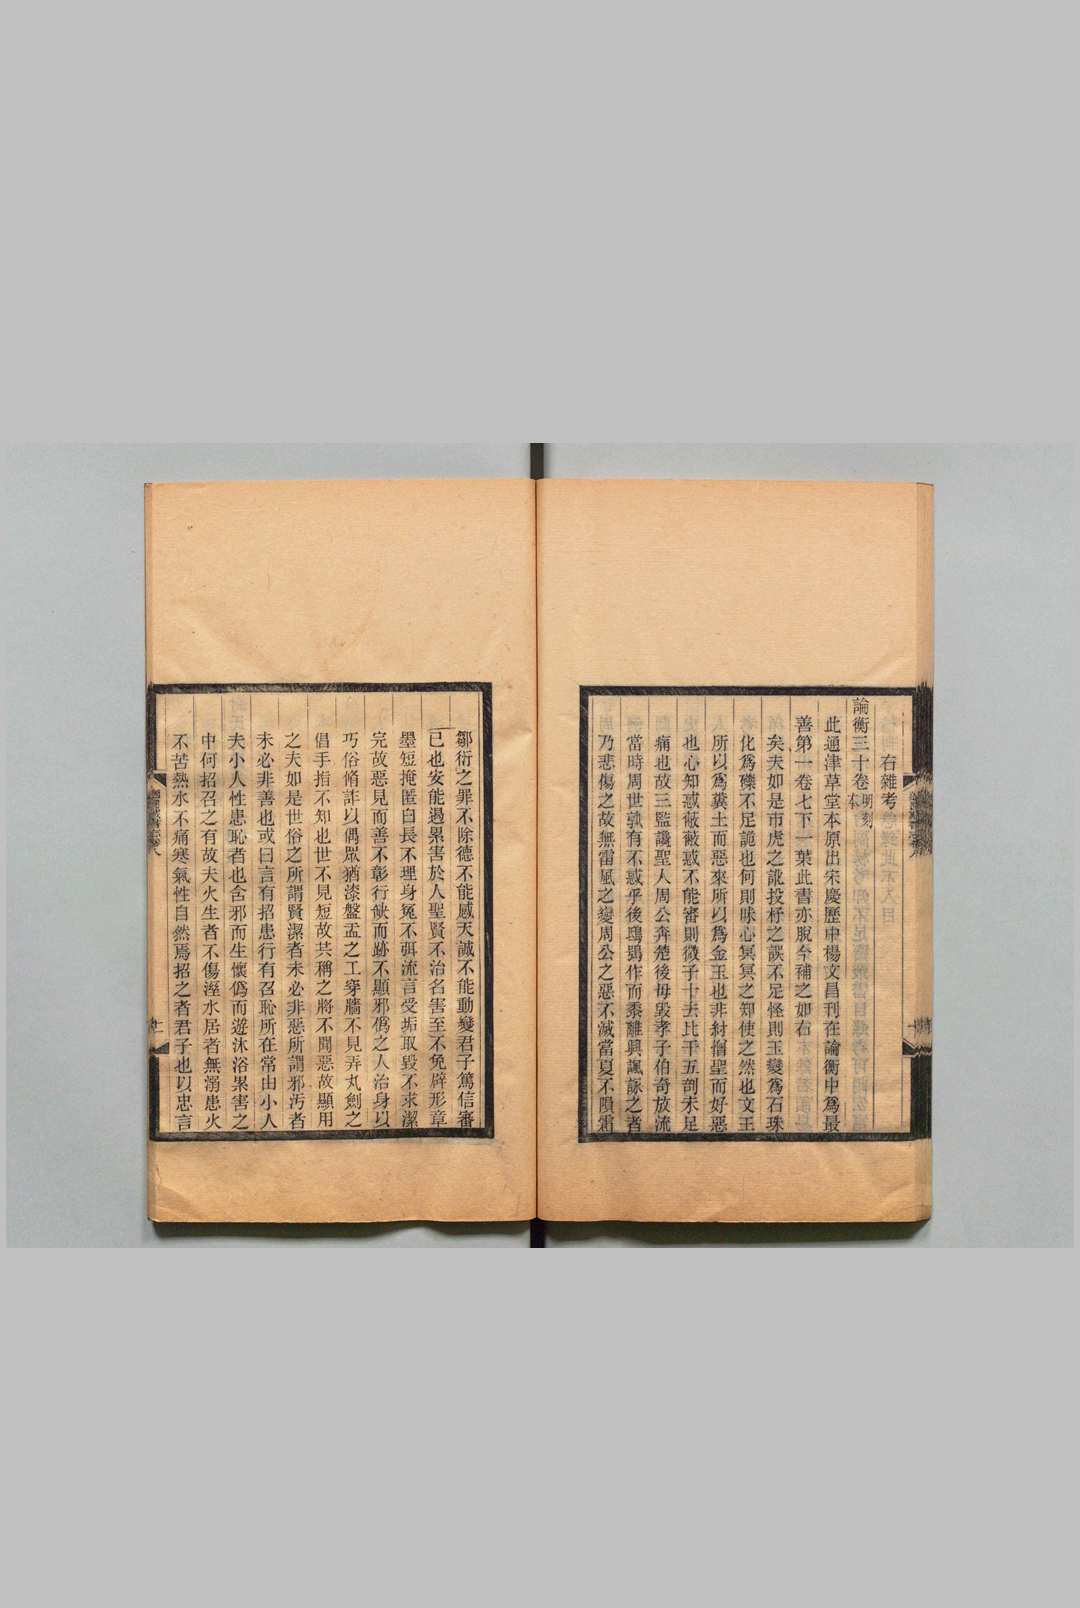 右雜考
論衡三十卷明刻本
此通津草堂本原出宋慶歷中楊文昌刊在論衡中爲最
善第一卷七下一葉此書亦脫今補之如右
矣夫如是市虎之訛投杼之誤不足怪則玉變爲石珠
化爲礫不足詭也何則昧心冥冥之知使之然也文王
所以爲糞土而惡來所以爲金玉也非紂憎聖而好惡
也心知惑蔽蔽惑不能審則微子十去比干五剖未足
痛也故三監讒聖人周公奔楚後母毀孝子伯奇放流
當時周世孰有不惑乎後鴟鴞作而黍離興諷詠之者
乃悲傷之故無雷風之變周公之惡不滅當夏不隕霜
鄒衍之罪不除德不能感天誠不能動變君子篤信審
己也安能遏累害於人聖賢不治名害至不免辟形章
墨短掩匿白長不理身冤不弭流言受垢取毀不求潔
完故惡見而善不彰行缺而跡不顯邪僞之人治身以
巧俗脩詐以偶眾猶漆盤盂之工穿牆不見弄丸劍之
倡手指不知也世不見短故共稱之將不聞惡故顯用
之夫如是世俗之所謂賢潔者未必非惡所謂邪汚者
未必非善也或曰言有招患行有召恥所在常由小人
夫小人性患恥者也含邪而生懷僞而遊沐浴累害之
中何招召之有故夫火生者不傷溼水居者無溺患火
不苦熱水不痛寒氣性自然焉招之者君子也以忠言
二